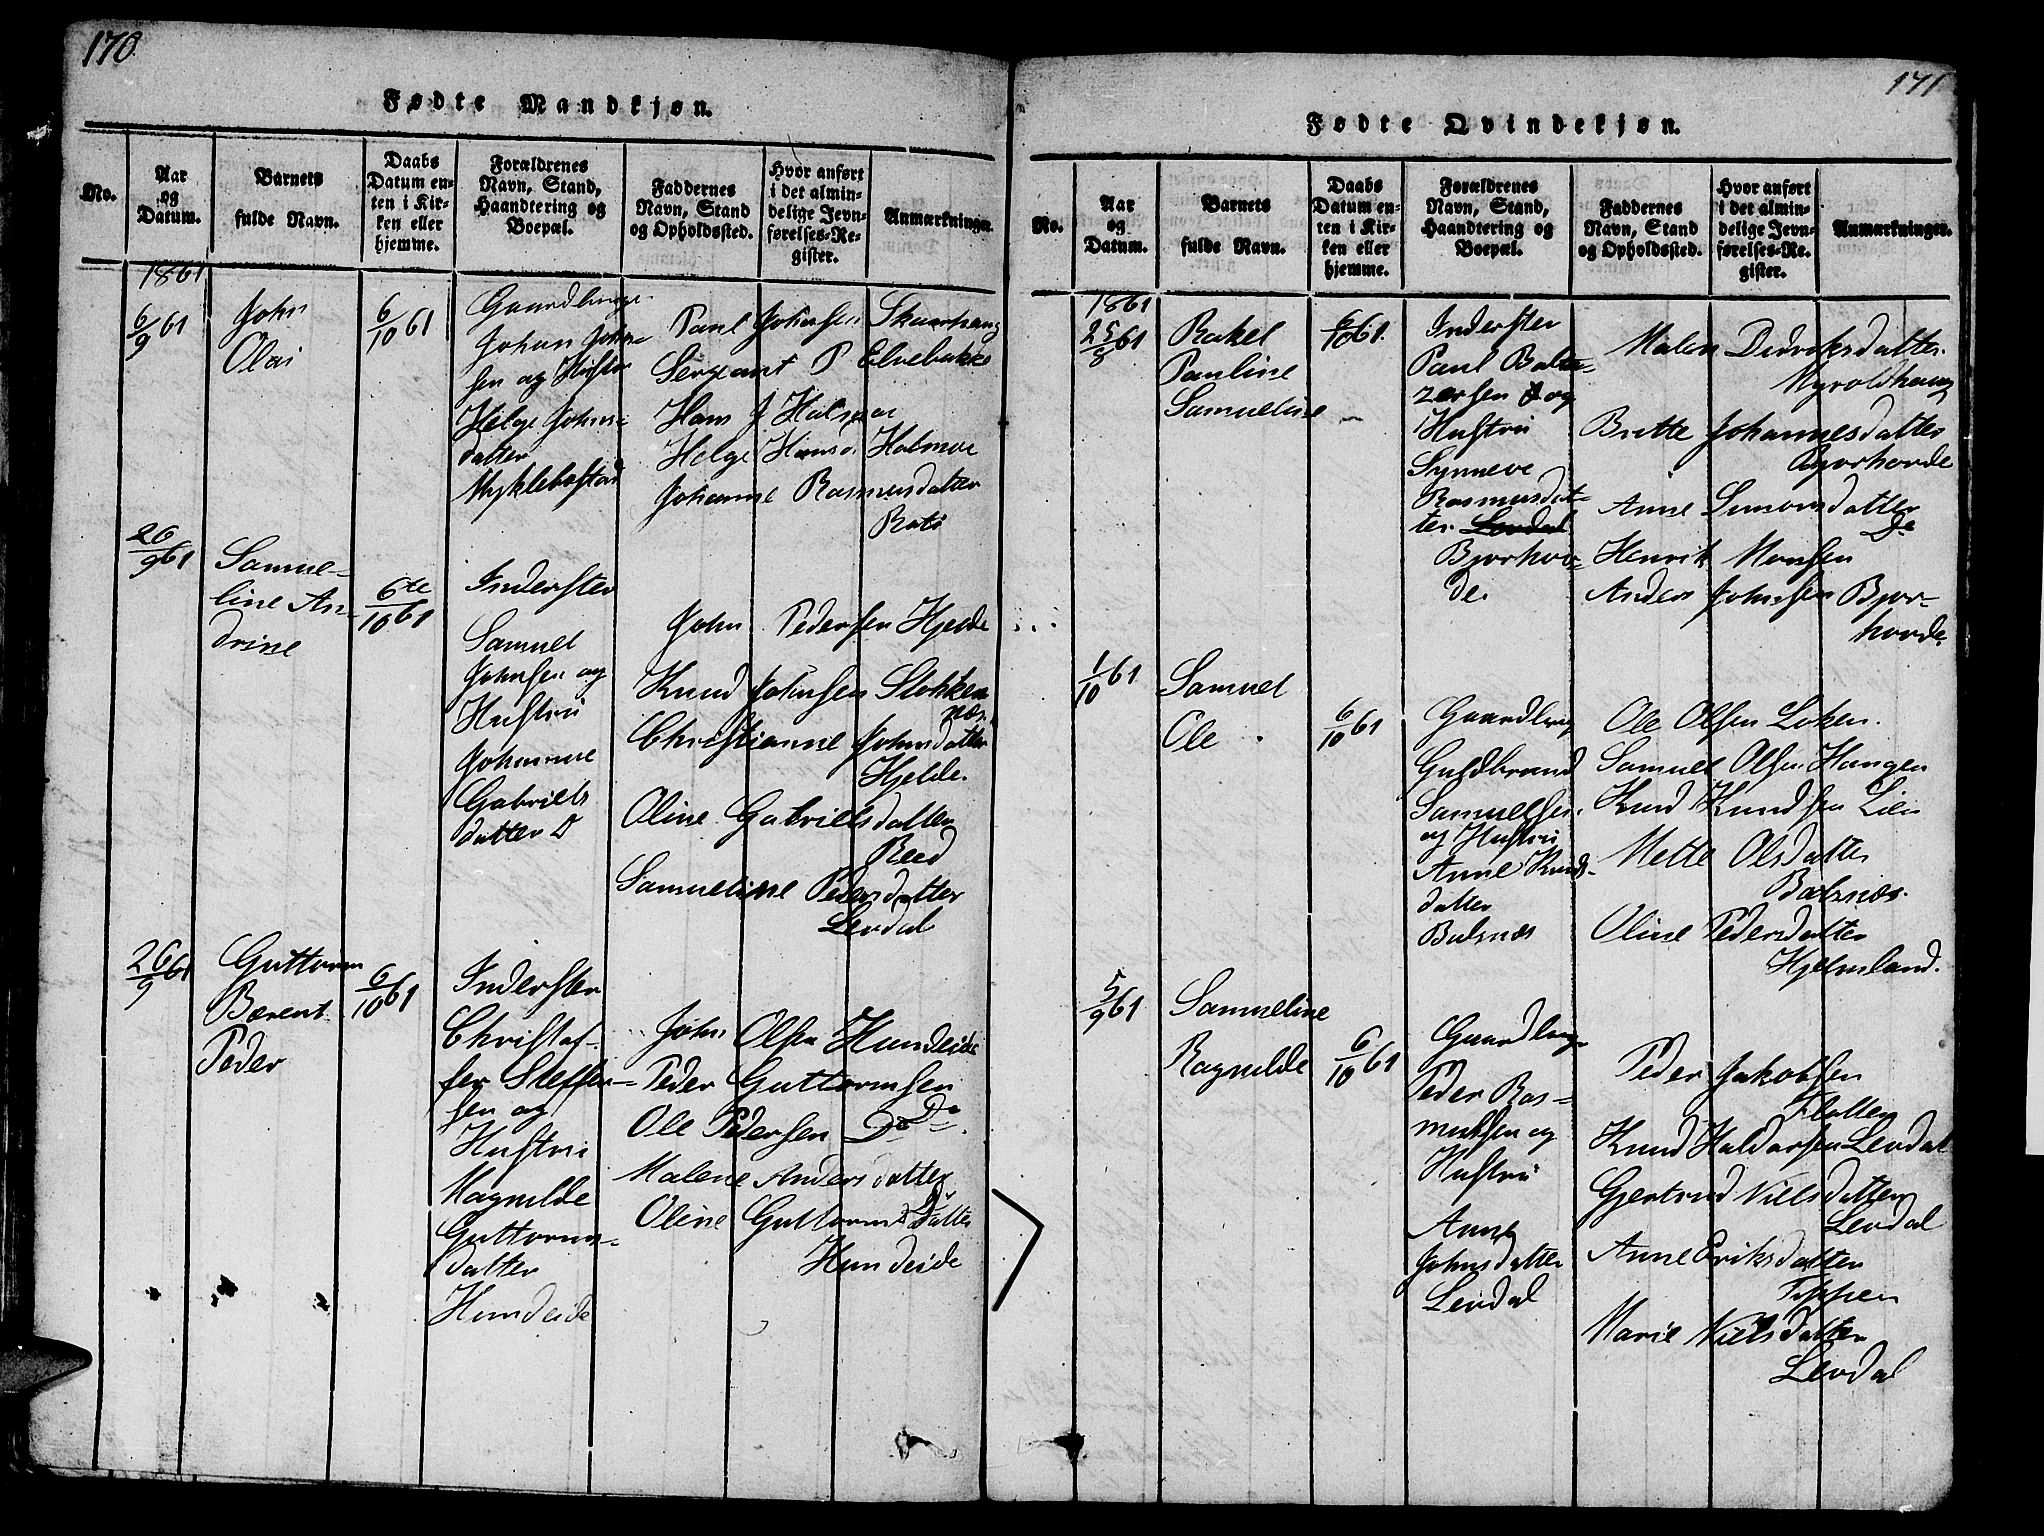 170
Fødte Mandkjøn.
No.
Aar
og
Datum.
Barnets
fulde Navn.
Daabs
Datum en-
ten i Kir-
ken eller
hjemme.
Forældrenes
Navn, Stand,
Haandtering og
Boepæl.
Faddernes
Navn, Stand
og Opholdssted.
Hvor anført
i det almin-
delige Jevn-
førelses-Re-
gister.
Anmærkninger.
1861
6/9 61
John
Olai
6/10 61
Johan John-
sen og Hustru
Helge Johns-
datter
Myklebostad
Paul Johnsen Skaarhaug
Sergeant P Elvebakke
Hans J Halmøe
Helge Hans Halmøe
Johanne Rasmusdatter
26/9 61
Samue-
line An-
drine
6te/10 61
Inderster
Samuel
Johnsen og
Hustru
Johanne
Gabriels
datter
John Pedersen Hjelde
Knud Johnsen Stokke
næs
Christianne Johnsdatter
Hjelde.
Oline Gabrielsdatter
Reed
Samueline Pedersdatter
Levdal
26/9 61
Guttorm
Berent
Peder
6/10 61
Inderster
Christof-
fer Steffen-
sen og
Hustru
Magnilde
Guttorms-
datter
Hundeide
John Olsen Hundeide
Peder Guttormsen
Do
Ole Pedersen Do
Malene Andersdatter
Oline Guttormsdatter
Hundeide
171
Fødte Qvindekjøn.
No.
Aar
og
Datum.
Barnets
fulde Navn.
Daabs
Datum en-
ten i Kir-
ken eller
hjemme.
Forældrenes
Navn, Stand,
Haandtering og
Boepæl.
Faddernes
Navn, Stand
og Opholdssted.
Hvor anført
i det almin-
delige Jevn-
førelses-Re-
gister.
Anmærkninger.
1861
25/8 61
Rakel
Pauline
Samueline
6/10 61.
Inderster
Paul Balte-
zersen og
Hustru
Synneve
Rasmusdat-
ter Levdal
Bjorhov-
de
Malen Didriksdatter
Myroldhaug
Britte Johannesdatter
Bjorhovde
Anne Simonsdatter
Do
Henrik Monsen
Anders Johnsen Bjor-
hovde
1/10 61
Samuel
Ole
6/10 61
Guldbrand
Samuelsen
og Hustru
Anne Knuds-
datter
Balsnæs
Ole Olsen Loken.
Samuel Olsen Haugen
Knud Knudsen Lien
Mette Olsdatter
Balsnæs.
Oline Pedersdatter
Hjelmeland.
5/9 61
Samueline
Ragnilde
6/10 61
Peder Ras-
mussen og
Hustru
Anne
Johnsdatter
Levdal
Peder Jakobsen
Flatten
Knud Haldorsen Levdal
Gjertrud Nielsdatter
Levdal
Anne Eriksdatter
Toppen
Marie Nielsdatter
Levdal